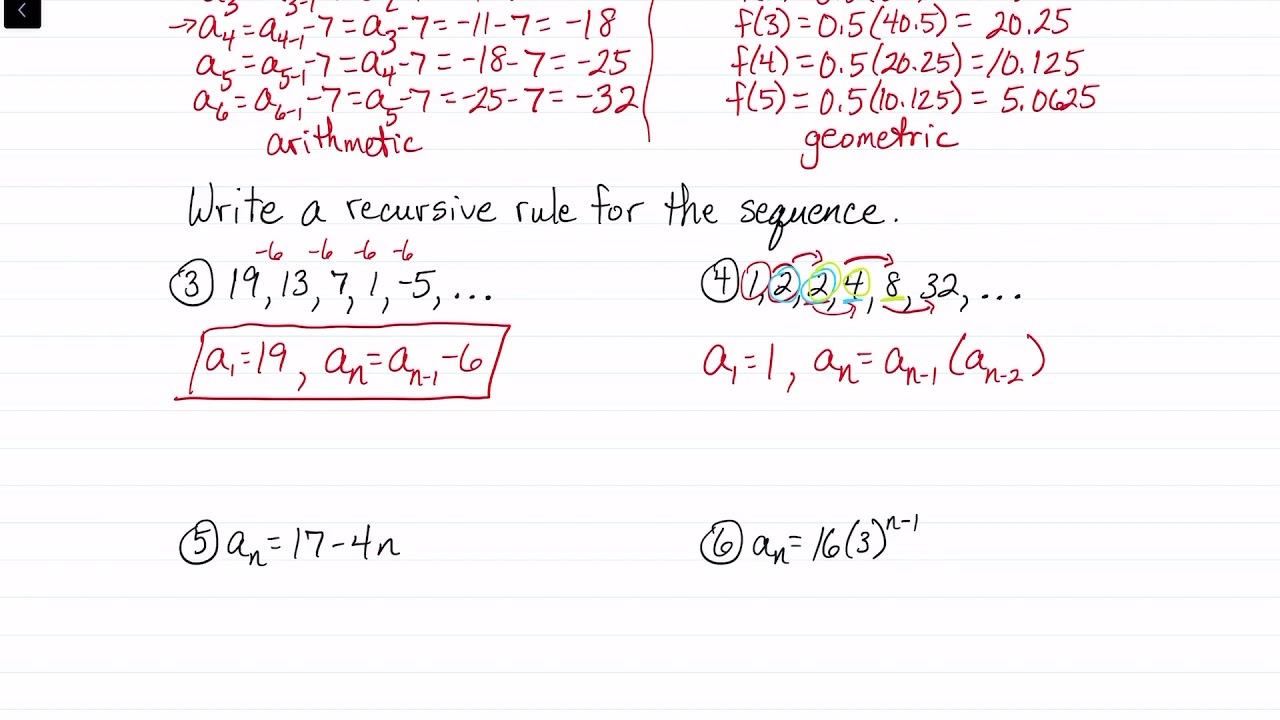 →a₄=a₄₋₁-7=a₃-7=-11-7=-18
a₅=a₅₋₁-7=a₄-7=-18-7=-25
a₆=a₆₋₁-7=a₅-7=-25-7=-32
arithmetic
f(3)=0.5(40.5)= 20.25
f(4)=0.5(20.25)=10.125
f(5)=0.5(10.125)= 5.0625
geometric
Write a recursive rule for the sequence.
-6 -6 -6 -6
③ 19, 13, 7, 1, -5, ...
a₁=19, aₙ=aₙ₋₁-6
④ 1, 2, 2, 4, 8, 32, ...
a₁=1, aₙ=aₙ₋₁(aₙ₋₂)
⑤ aₙ=17-4n
⑥ aₙ=16(3)ⁿ⁻¹